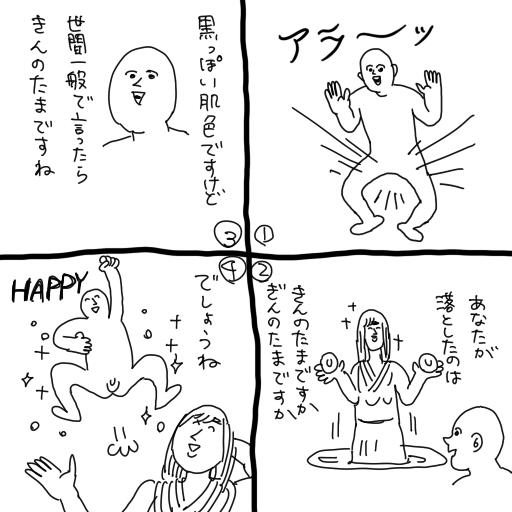 ①
アラ〜ッ
②
あなたが
落としたのは
きんのたまですか
ぎんのたまですか
③
黒っぽい肌色ですけど
世間一般で言ったら
きんのたまですね
④
でしょうね
HAPPY